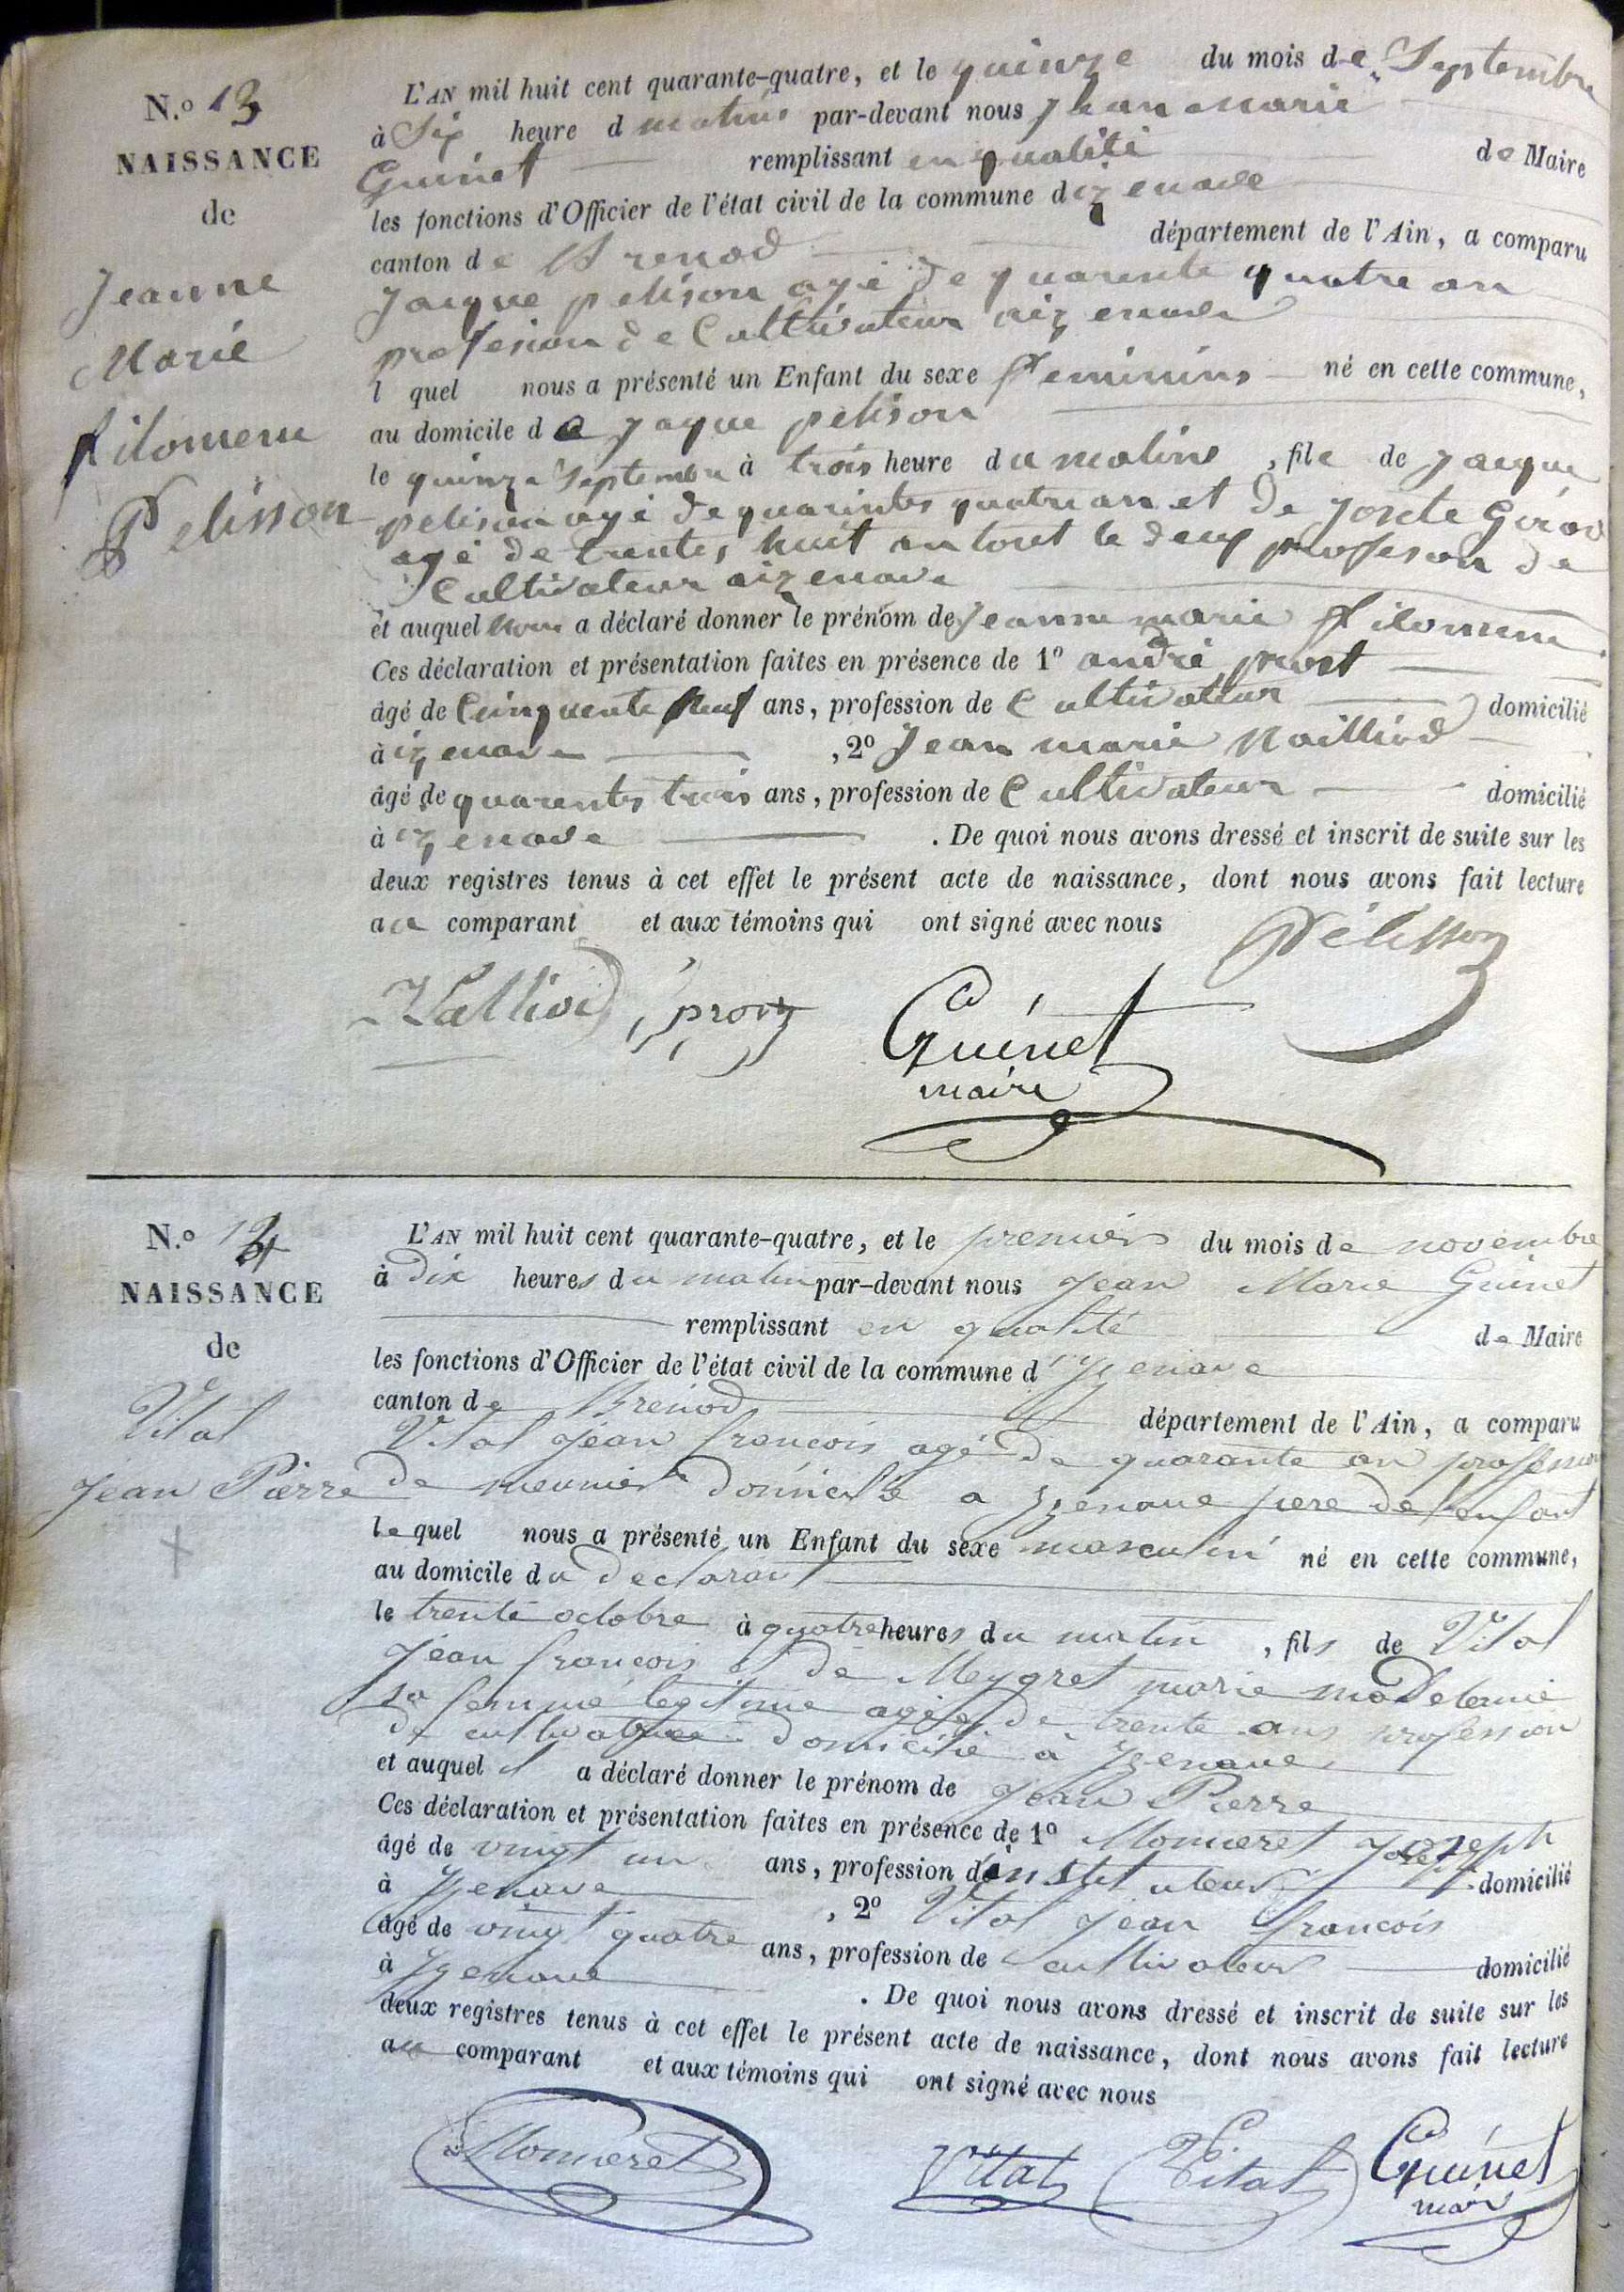 N.º 13
NAISSANCE
de
Jeanne
Marie
filomene
Pelisson
L'AN mil huit cent quarante-quatre, et le quinze du mois de Septembre
à Six heure d matins par-devant nous Jean marie
Guinet remplissant en qualité de Maire
les fonctions d'Officier de l'état civil de la commune d izenave
canton de Brenod département de l'Ain, a comparu
Jacque pelison agé de quarente quatre an
profesion de Cultivateur aizenave
l quel nous a présenté un Enfant du sexe feminins né en cette commune,
au domicile de Jaque pelison
le quinze Septembre à trois heure du matins, file de Jacque
pelison agé de quarintes quatre an et de Josete Girod
agé de trentes huit an tout le deux profeson de
Cultivateur aizenave
et auquel nous a déclaré donner le prénom de Jeanne marie filomene
Ces déclaration et présentation faites en présence de 1º andré prost
âgé de Cinquente neuf ans, profession de Cultivateur domicilié
à izenave , 2º Jean marie Nalliod
âgé de quarentes trois ans, profession de Cultivateur domicilié
à izenave . De quoi nous avons dressé et inscrit de suite sur les
deux registres tenus à cet effet le présent acte de naissance, dont nous avons fait lecture
au comparant et aux témoins qui ont signé avec nous Pélisson
Nalliod prost Guinet
maire
N.º 14
NAISSANCE
de
Vital
Jean Pierre
L'AN mil huit cent quarante-quatre, et le premier du mois de novembre
à dix heures du matin par-devant nous Jean Marie Guinet
remplissant en qualité de Maire
les fonctions d'Officier de l'état civil de la commune d'Izenave
canton de Brenod département de l'Ain, a comparu
Vital Jean françois agé de quarante an profession
de meunier domicilié a Izenave pere de l'enfant
lequel nous a présenté un Enfant du sexe masculin né en cette commune,
au domicile du declarant
le trente octobre à quatre heures du matin, fils de Vital
Jean françois et de Meygret marie madelaine
sa femme legitime agée de trente ans profession
de cultivatrice domicilié à Izenave
et auquel il a déclaré donner le prénom de Jean Pierre
Ces déclaration et présentation faites en présence de 1º Momeret Joseph
âgé de vingt un ans, profession d'instituteur domicilié
à Izenave , 2º Vital Jean françois
âgé de vingt quatre ans, profession de cultivateur domicilié
à Izenave . De quoi nous avons dressé et inscrit de suite sur les
deux registres tenus à cet effet le présent acte de naissance, dont nous avons fait lecture
au comparant et aux témoins qui ont signé avec nous
Momeret Vital Vital Guinet
maire